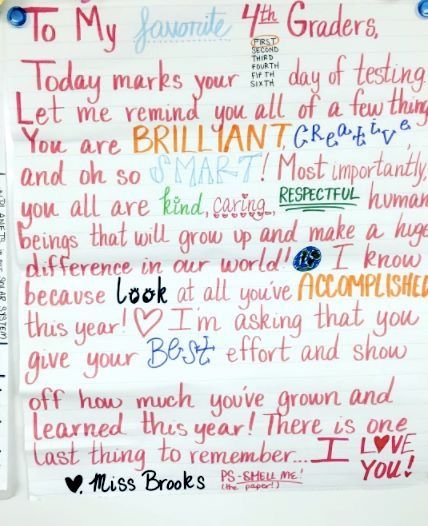 To My favorite 4th Graders,
FIRST
SECOND
THIRD
FOURTH
FIFTH
SIXTH
Today marks your day of testing
Let me remind you all of a few thing
You are BRILLIANT, CReative,
and oh so SMART! Most importantly,
you all are kind, caring, RESPECTFUL human
beings that will grow up and make a huge
difference in our world! I know
because look at all you've ACCOMPLISHED
this year! ♡ I'm asking that you
give your BeSt effort and show
off how much you've grown and
learned this year! There is one
last thing to remember... I LOVE
YOU!
♥, Miss Brooks
PS-SMELL ME!
(the paper!)
SOLAR SYSTEM